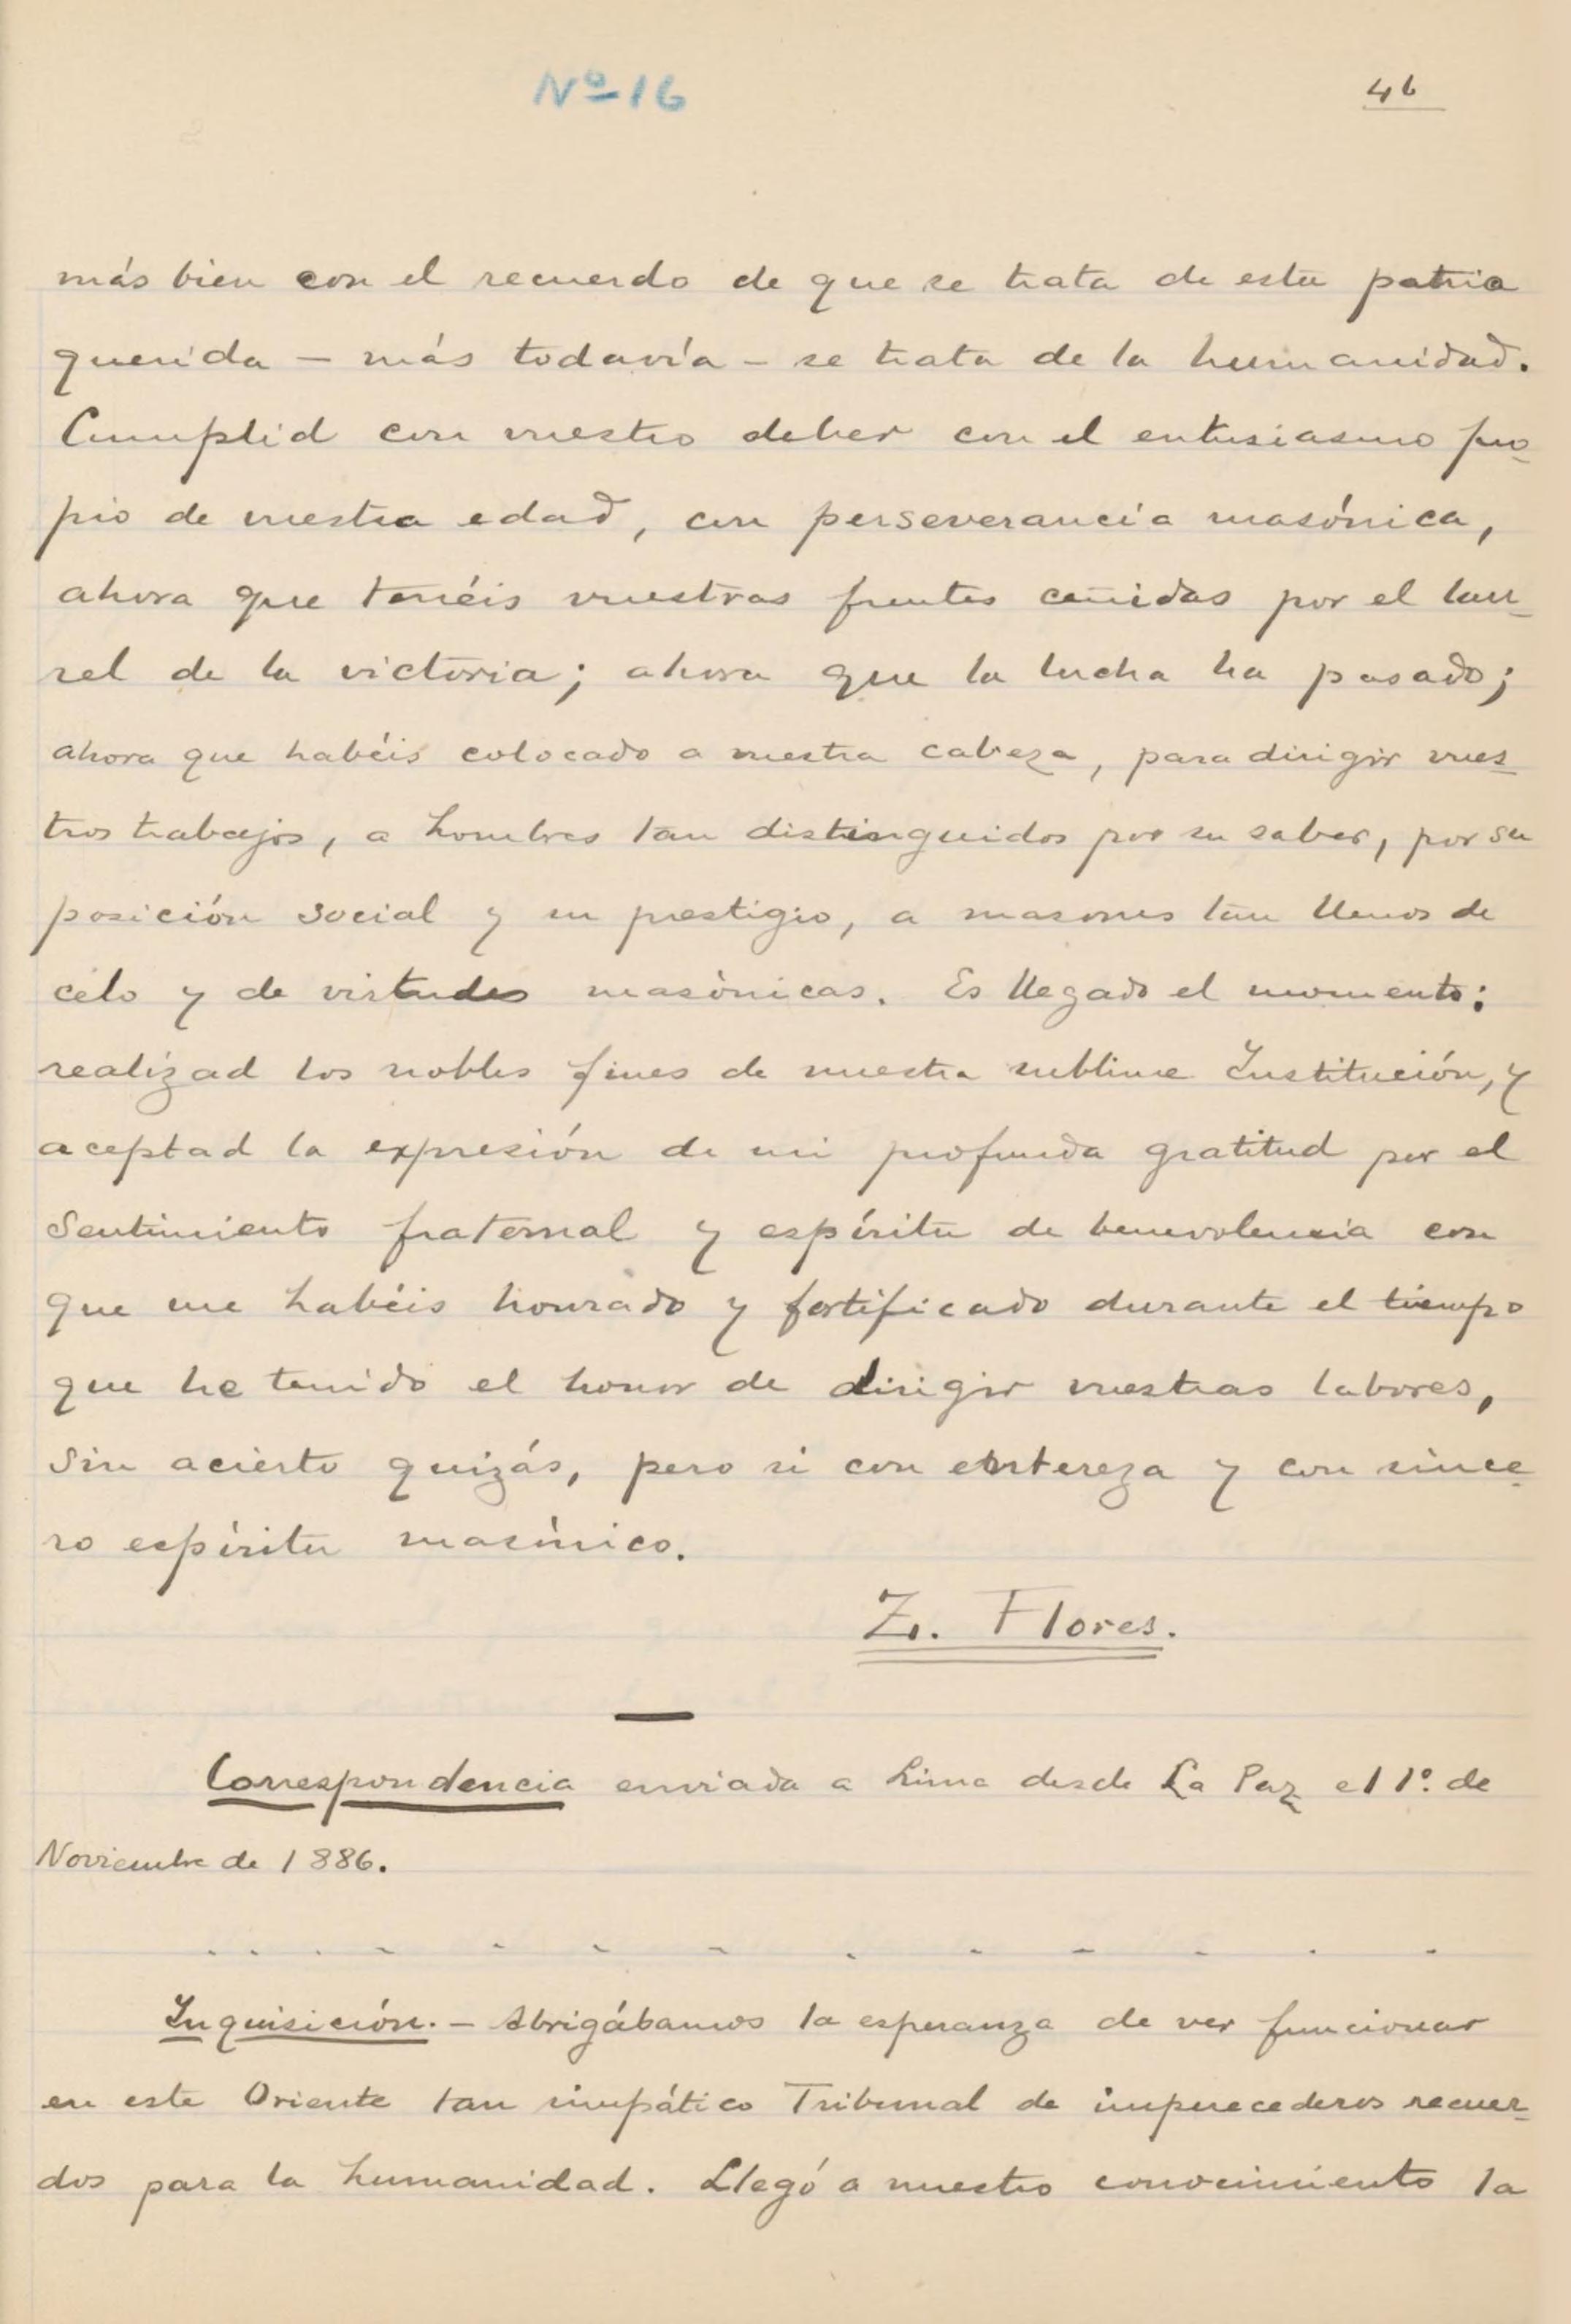 Nº 16
46
más bien con el recuerdo de que se trata de esta patria
querida — más todavía — se trata de la humanidad.
Cumplid con vuestro deber con el entusiasmo pro-
pio de vuestra edad, con perseverancia masónica,
ahora que tenéis vuestras frentes ceñidas por el lau-
rel de la victoria; ahora que la lucha ha pasado;
ahora que habéis colocado a vuestra cabeza, para dirigir vues-
tros trabajos, a hombres tan distinguidos por su saber, por su
posición social y su prestigio, a masones tan llenos de
celo y de virtudes masónicas. Es llegado el momento:
realizad los nobles fines de nuestra sublime Institución, y
aceptad la expresión de mi profunda gratitud por el
sentimiento fraternal y espíritu de benevolencia con
que me habéis honrado y fortificado durante el tiempo
que he tenido el honor de dirigir vuestras labores,
sin acierto quizás, pero si con entereza y con since-
ro espíritu masónico.
Z. Flores.
—
Correspondencia enviada a Lima desde La Paz el 1º de
Noviembre de 1886.
. . . . . . . . . . . . .
Inquisición. — Abrigábamos la esperanza de ver funcionar
en este Oriente tan simpático Tribunal de imperecederos recuer-
dos para la humanidad. Llegó a nuestro conocimiento la